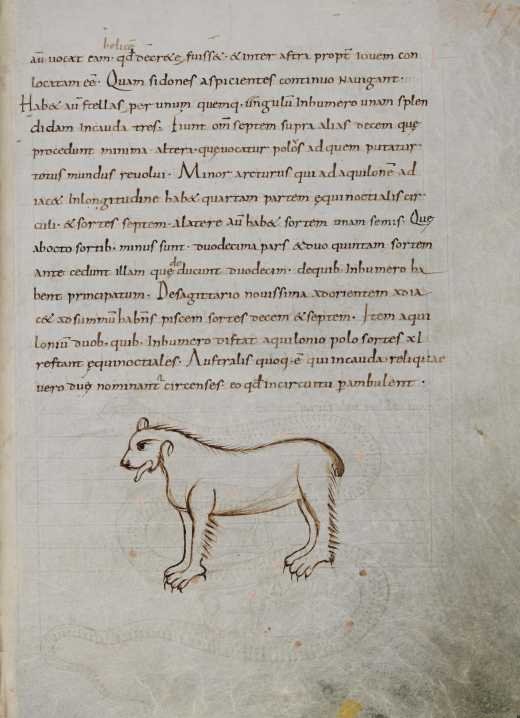 helicẽ
aũ uocat eam · qđ decreẽ fuisse · & inter astra propt̃ Iouem con
locatam eẽ · Quam sidones aspicientes continuo nauigant ·
Hab& aũ stellas per unum quemq, ungulũ Inhumero unam splen
didam Incauda tres · fiunt om̃ septem supra alias decem quę
procedunt minima · altera · quę uocatur polos ad quem putatur
totus mundus reuolui · Minor arcturus qui ad aquilonẽ ad
iac& Inlongitudine hab& quartam partem ęquinoctialis cir
culi · & sortes septem · a latere aũ hab& sortem unam semis · Quę
ab octo sortib · minus sunt · duodecima pars & duo quintam sortem
ante cedunt illam quę educunt duodecim · de quib · Inhumero ha
bent principatum · De sagittario nouissima ad orientem adia
c& ad summũ habñs piscem sortes decem & septem · Item aqui
loniũ duob · quib · Inhumero distat aquilonio polo sortes xl
restant ęquinoctiales · Australis quoq · ẽ qui incauda reliquae
uero duę nominant circenses · eo qđ incircuitu pambulent ·
47